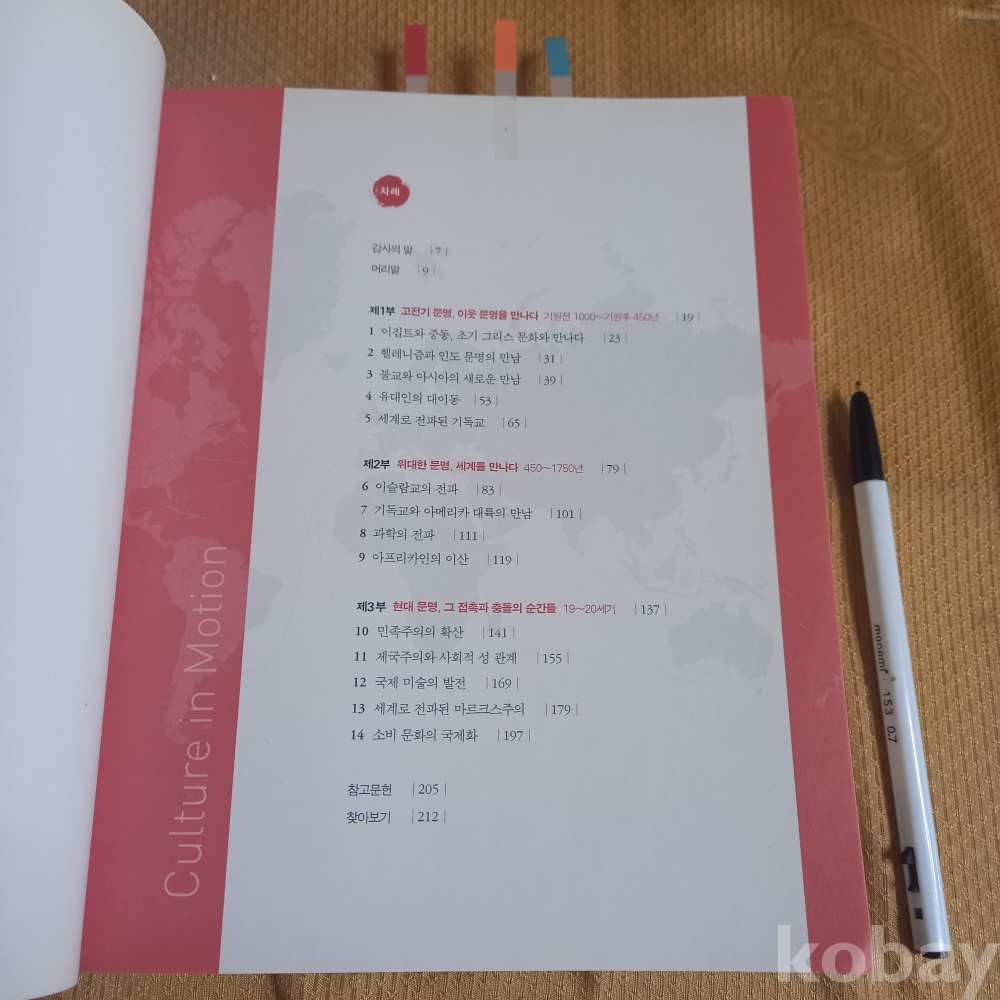 차례
감사의 말 | 7 |
머리말 | 9 |
제1부 고전기 문명, 이웃 문명을 만나다 기원전 1000~기원후 450년 | 19 |
1 이집트와 중동, 초기 그리스 문화와 만나다 | 23 |
2 헬레니즘과 인도 문명의 만남 | 31 |
3 불교와 아시아의 새로운 만남 | 39 |
4 유대인의 대이동 | 53 |
5 세계로 전파된 기독교 | 65 |
제2부 위대한 문명, 세계를 만나다 450~1750년 | 79 |
6 이슬람교의 전파 | 83 |
7 기독교와 아메리카 대륙의 만남 | 101 |
8 과학의 전파 | 111 |
9 아프리카인의 이산 | 119 |
제3부 현대 문명, 그 접촉과 충돌의 순간들 19~20세기 | 137 |
10 민족주의의 확산 | 141 |
11 제국주의와 사회적 성 관계 | 155 |
12 국제 미술의 발전 | 169 |
13 세계로 전파된 마르크스주의 | 179 |
14 소비 문화의 국제화 | 197 |
참고문헌 | 205 |
찾아보기 | 212 |
Culture in Motion
monami 153 0.7
kobay